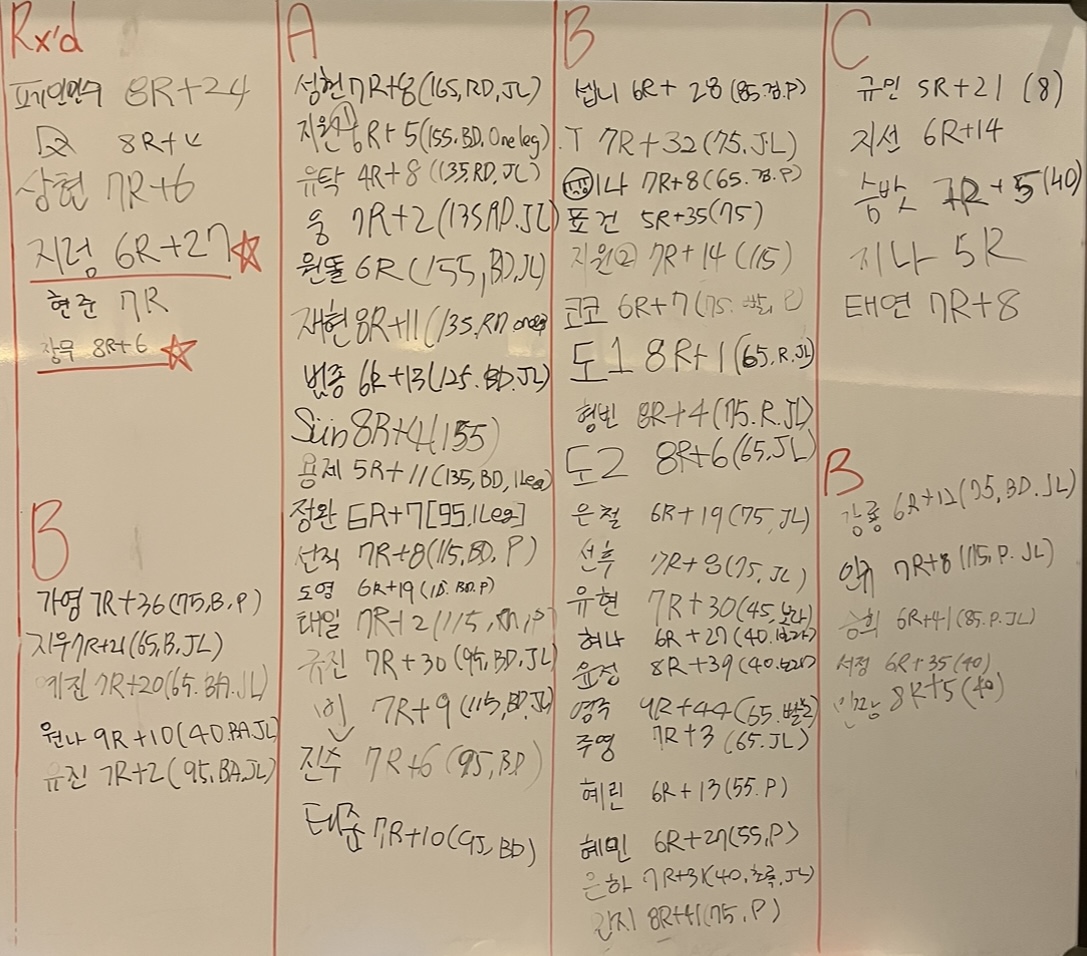 Rx'd
파인애플 8R+24
8R+
상현 7R+6
지정 6R+27
현준 7R
장우 8R+6
B
가영 7R+36(75,B,P)
지우 7R+21(65,B,JL)
예진 7R+20(65.BA.JL)
원나 9R+10(40.BA.JL)
유진 7R+2(95,BA,JL)
A
성현 7R+8(165,RD,JL)
지원① 6R+5(155,BD,One leg)
유탁 4R+8(135,RD,JL)
웅 7R+2(135RD.JL)
원똘 6R(155,BD,JL)
재현 8R+11(135,RD one leg)
범종 6R+13(125.BD.JL)
Sun 8R+4(155)
용제 5R+11(135,BD,1Leg)
정완 6R+7[95.1Leg]
선직 7R+8(115,BD,P)
도영 6R+19(115.BD.P)
태일 7R+2(115, ,P)
규진 7R+30(95,BD,JL)
7R+9(115,BD,JL)
진수 7R+6(95,BD)
태준 7R+10(95,BD)
B
썹니 6R+28(85.검.P)
T 7R+32(75.J.L)
이나 7R+8(65.검.P)
표건 5R+35(75)
지원② 7R+14(115)
코코 6R+7(75. P)
도1 8R+1(65.R.JL)
형빈 8R+4(75.R.JL)
도2 8R+6(65.JL)
은철 6R+19(75,JL)
선후 7R+8(75,JL)
유현 7R+30(45,보라)
허나 6R+27(40.보라)
윤정 8R+39(40.보라)
영주 4R+44(65.빨강)
주영 7R+3(65.JL)
혜린 6R+13(55.P)
혜민 6R+27(55,P)
은하 7R+31(40,초록,JL)
간지 8R+41(75,P)
C
규민 5R+21(8)
지선 6R+14
숨밧 7R+5(40)
지나 5R
태연 7R+8
B
강룡 6R+12(75,BD.JL)
7R+8(115,P.JL)
승희 6R+41(85.P.JL)
서정 6R+35(40)
8R+5(40)